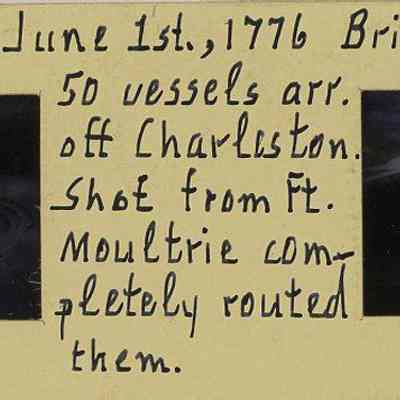 June 1st., 1776 Bri
50 vessels arr.
off Charleston.
Shot from Ft.
Moultrie com-
pletely routed
them.